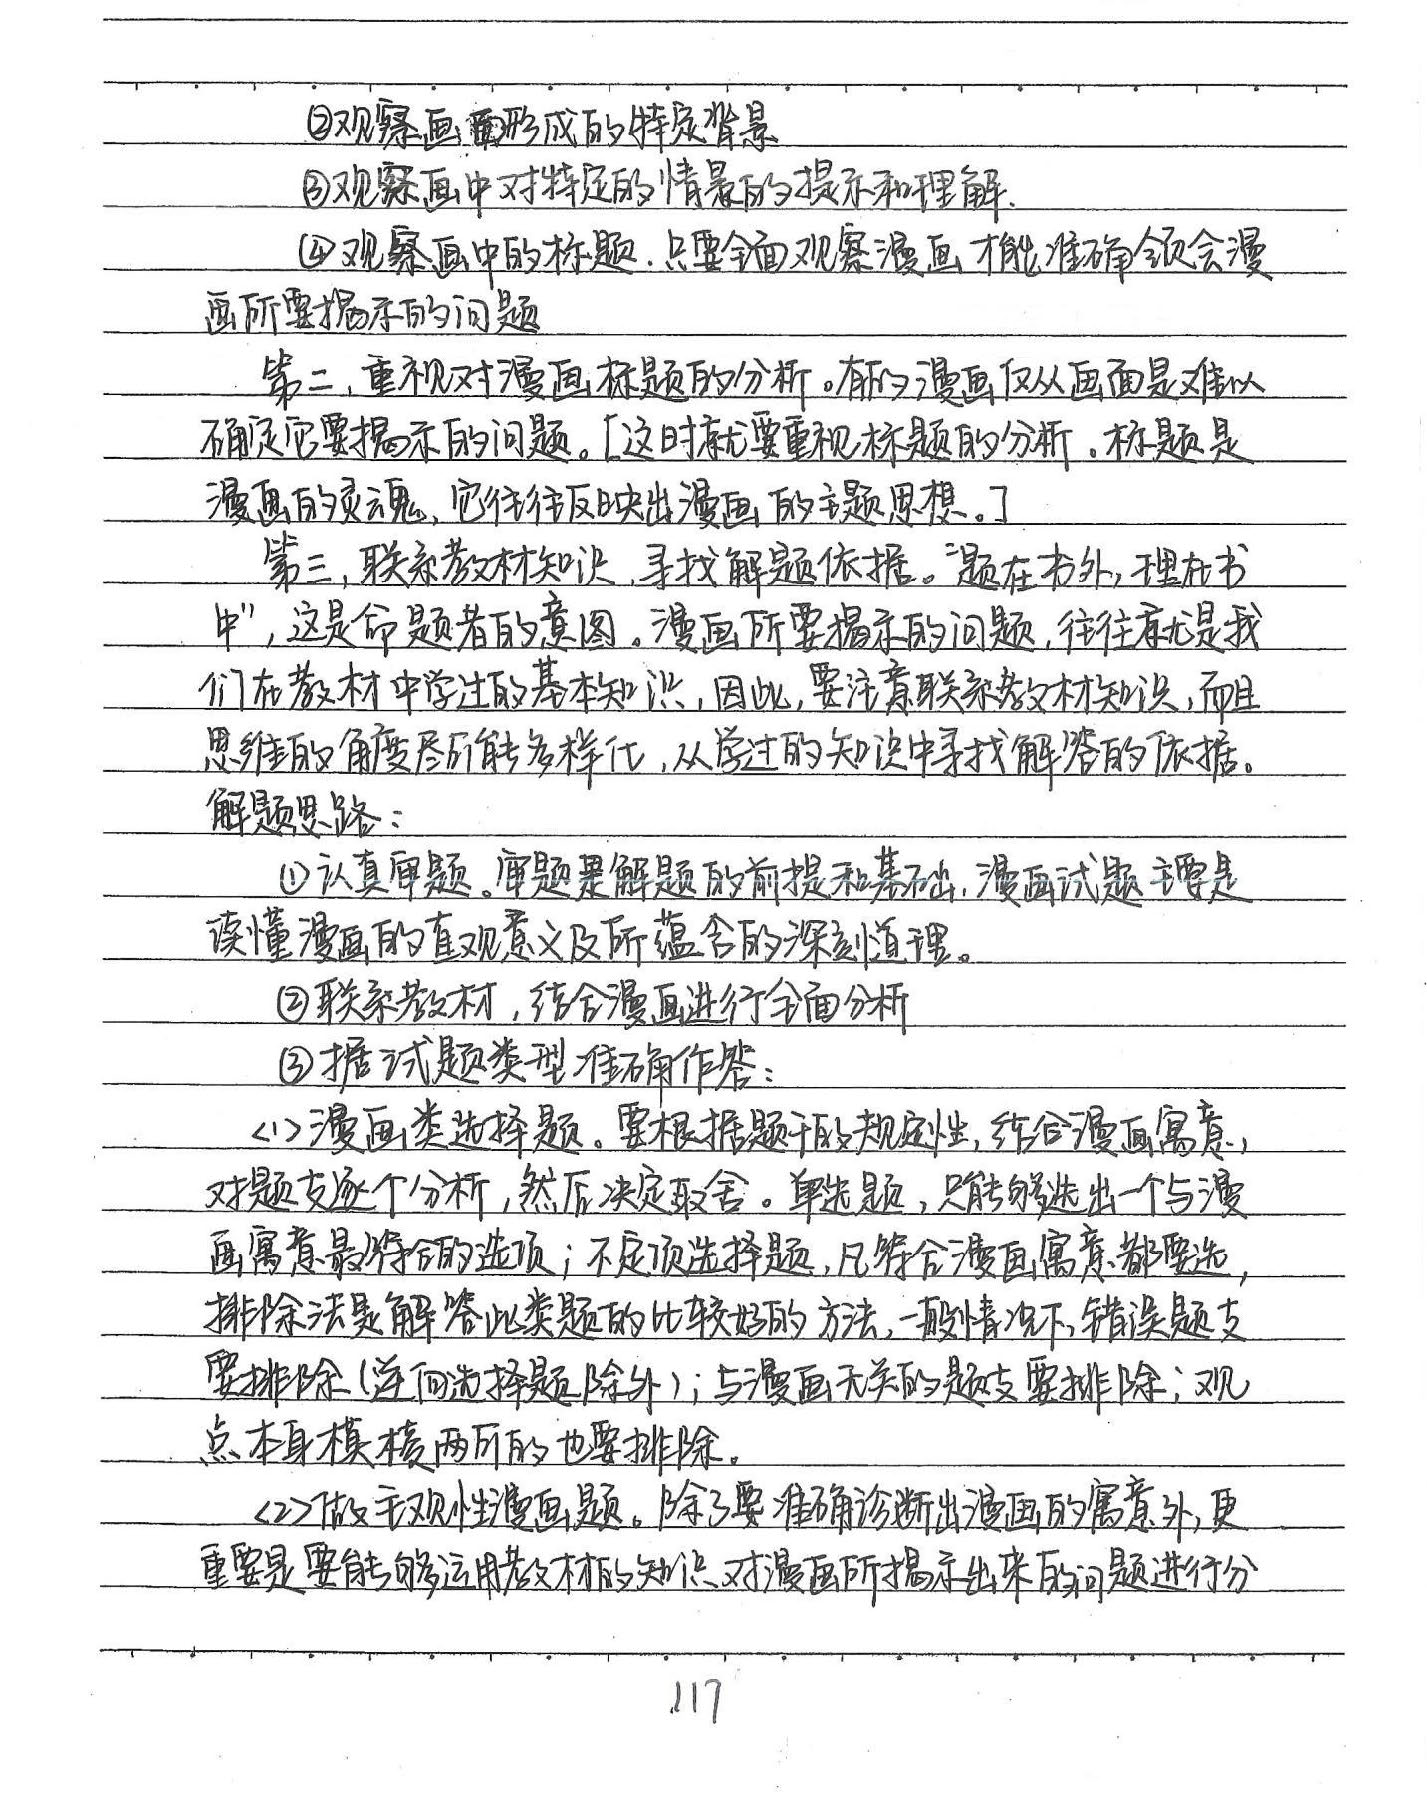 ②观察画面形成的特定背景
③观察画中对特定的情景的提示和理解.
④观察画中的标题.只要全面观察漫画才能准确领会漫
画所要揭示的问题
第二,重视对漫画标题的分析。有的漫画仅从画面是难以
确定它要揭示的问题。[这时就要重视标题的分析。标题是
漫画的灵魂,它往往反映出漫画的主题思想。]
第三,联系教材知识,寻找解题依据。"题在书外,理在书
中",这是命题者的意图。漫画所要揭示的问题,往往就是我
们在教材中学过的基本知识,因此,要注意联系教材知识,而且
思维的角度尽所能多样化,从学过的知识中寻找解答的依据。
解题思路:
①认真审题。审题是解题的前提和基础,漫画试题主要是
读懂漫画的直观意义及所蕴含的深刻道理。
②联系教材,结合漫画进行全面分析
③据试题类型准确作答:
<1>漫画类选择题。要根据题干的规定性,结合漫画寓意,
对题支逐个分析,然后决定取舍。单选题,只能够选出一个与漫
画寓意最符合的选项;不定项选择题,凡符合漫画寓意都要选,
排除法是解答此类题的比较好的方法,一般情况下,错误题支
要排除(逆向选择题除外);与漫画无关的题支要排除;观
点本身模棱两所的也要排除。
<2>做主观性漫画题。除了要准确诊断出漫画的寓意外,更
重要是要能够运用教材的知识对漫画所揭示出来的问题进行分
117